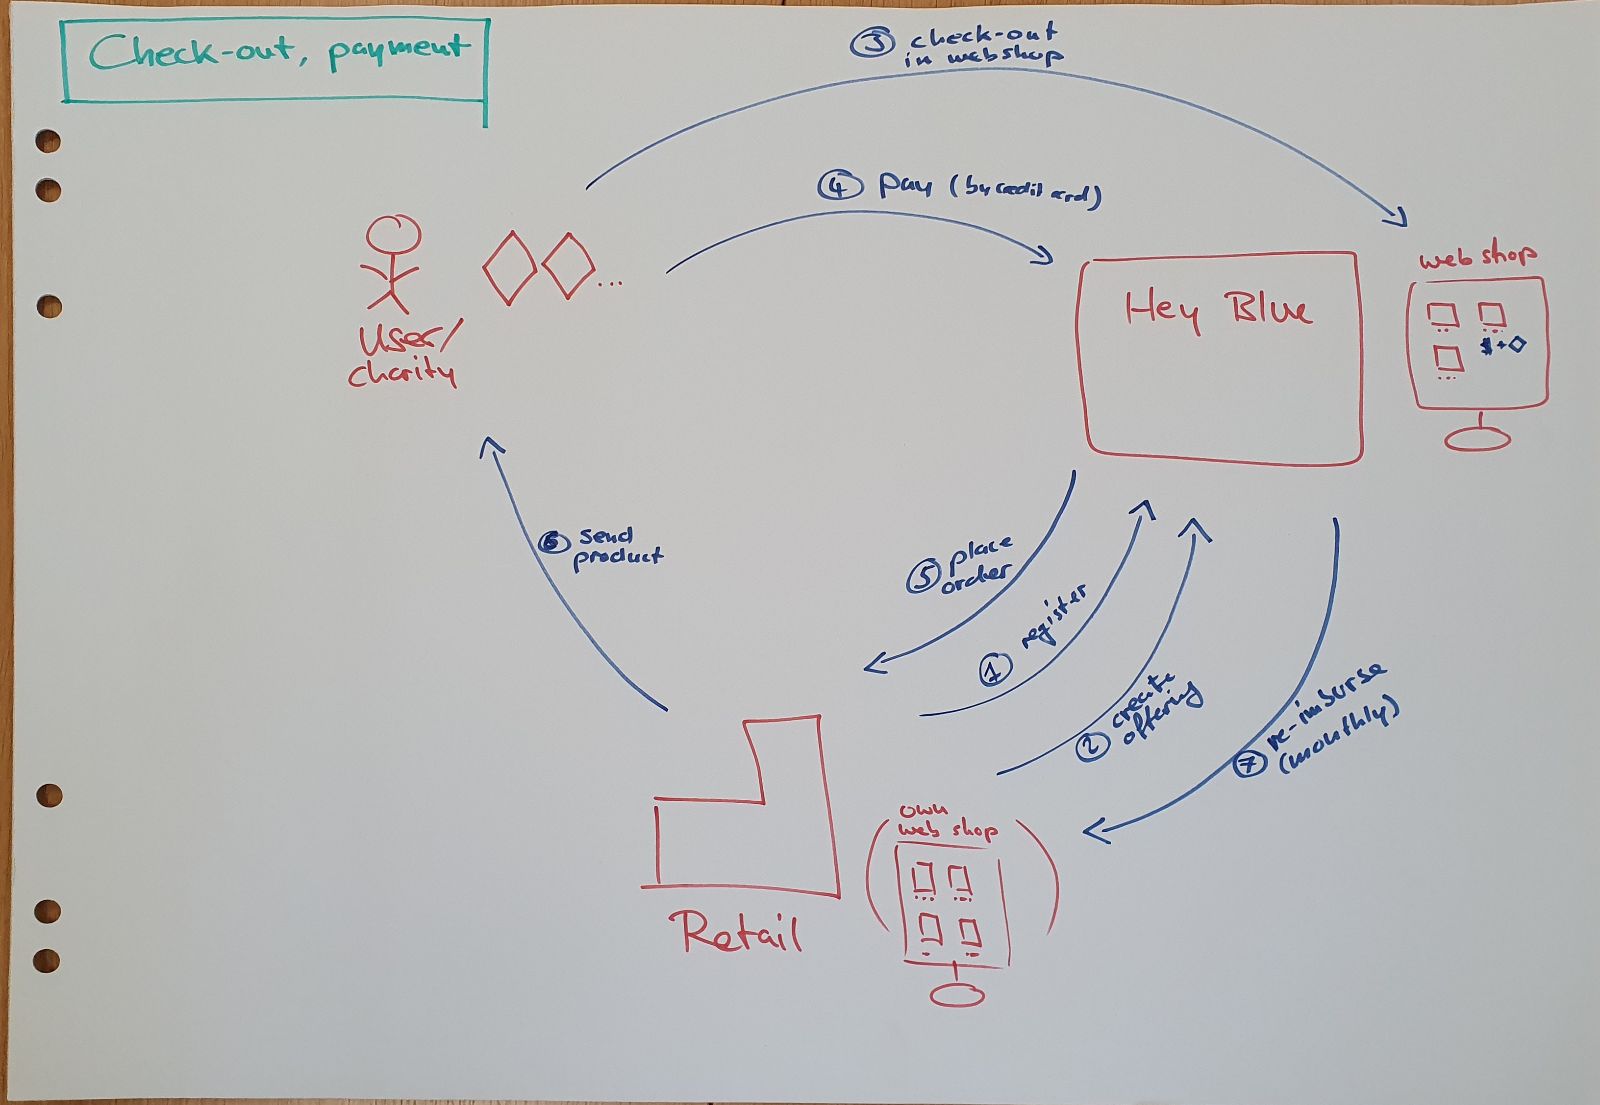 Check-out, payment
3 check-out
in webshop
4 pay (by credit card)
User/
charity
...
Hey Blue
web shop
$+◇
6 send
product
5 place
order
1 register
2 create
offering
7 re-imburse
(monthly)
own
web shop
Retail